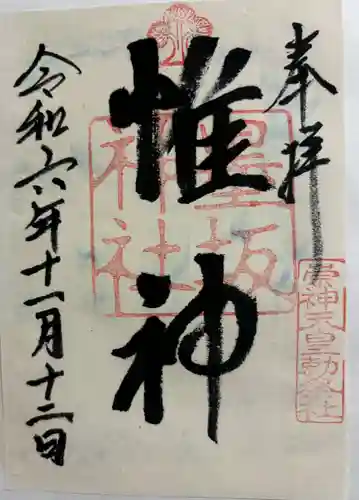 奉拝
崇神天皇勅祭社
惟神
墨坂
神社
令和六年十一月十二日